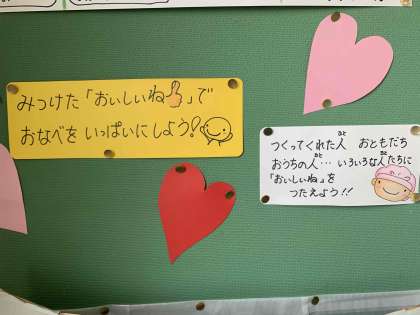 みつけた「おいしいね👍」で
おなべを いっぱいにしよう!
つくってくれた人 おともだち
おうちの人… いろいろな人たちに
「おいしいね」を
つたえよう!!